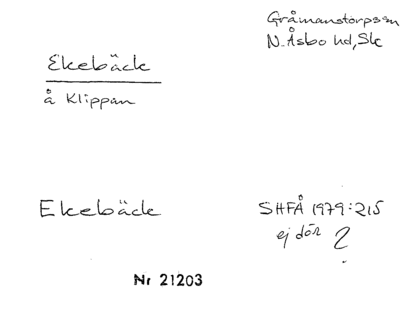 Gråmanstorpssn
N. Åsbo hd, Sk
Ekebäck
å Klippan
Ekebäck
SHFÅ 1979:215
ej där ?
Nr 21203